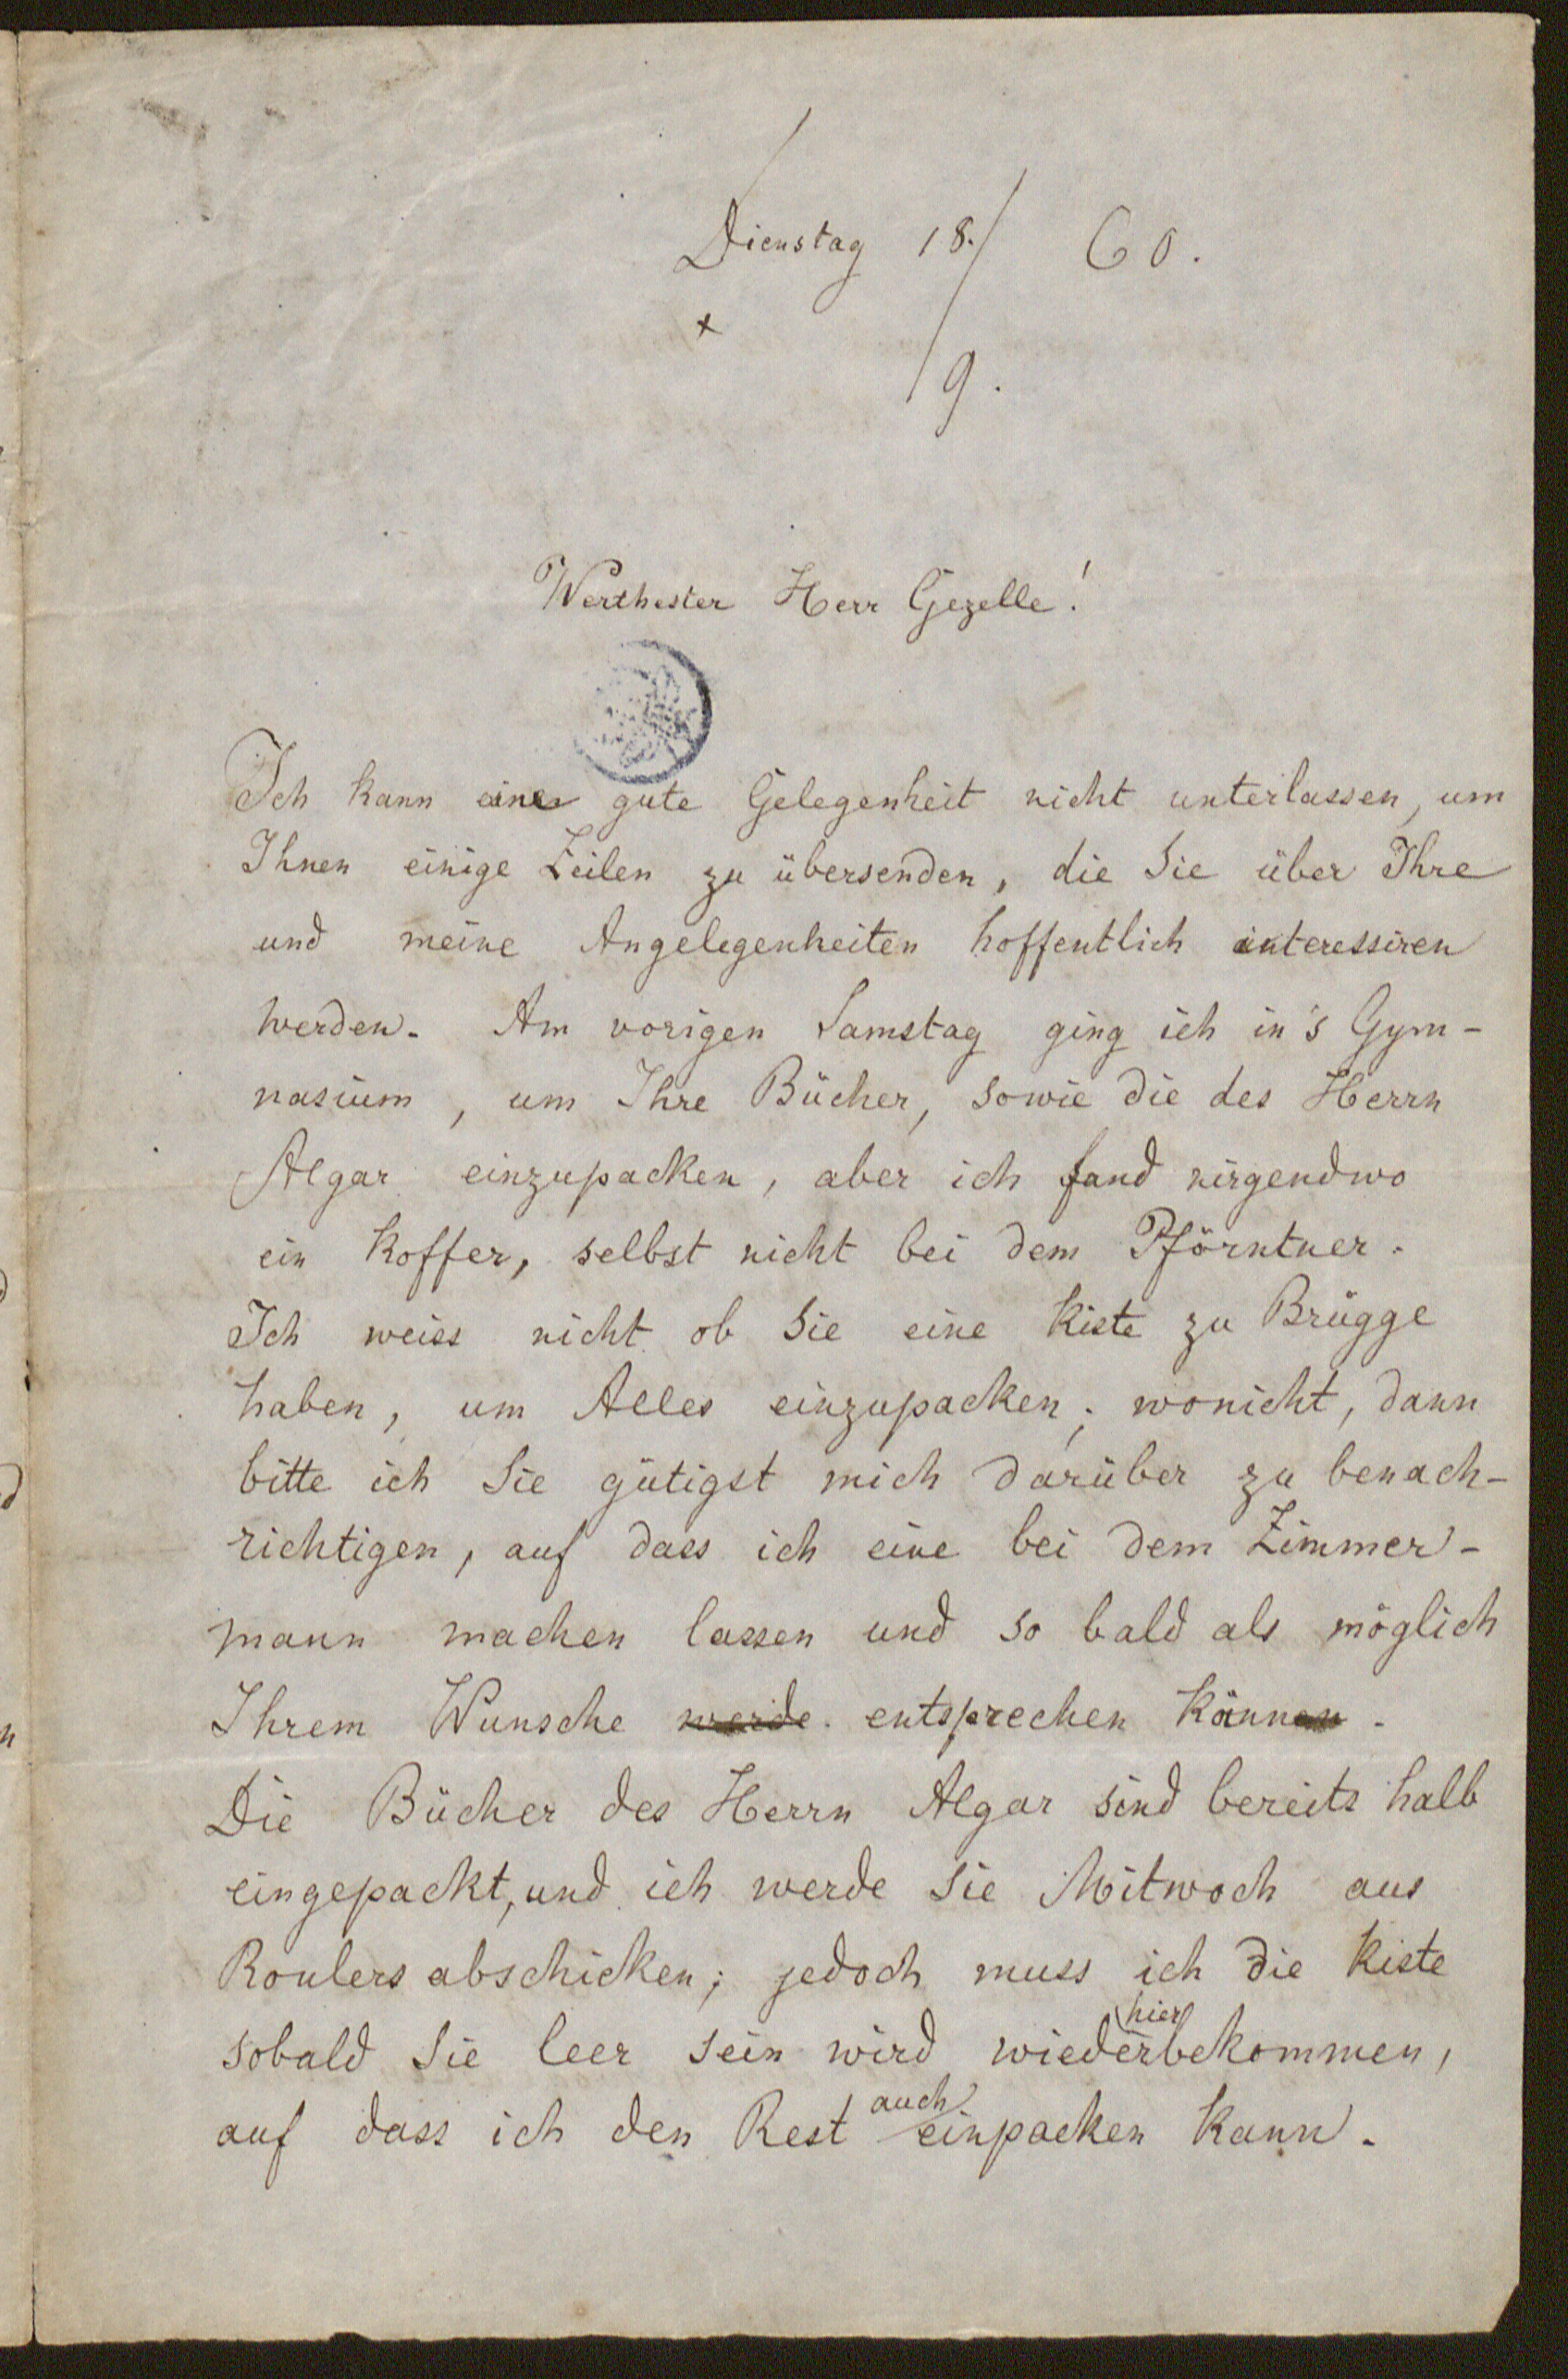 Dienstag 18./9. 60.
+
Werthester Herr Gezelle!
Ich kann eine gute Gelegenheit nicht unterlassen, um
Ihnen einige Zeilen zu übersenden, die Sie über Ihre
und meine Angelegenheiten hoffentlich interessiren
werden. Am vorigen Samstag ging ich in's Gym-
nasium, um Ihre Bücher, sowie die des Herrn
Algar einzupacken, aber ich fand nirgendwo
ein Koffer, selbst nicht bei dem Pförntner.
Ich weiss nicht ob Sie eine Kiste zu Brügge
haben, um Alles einzupacken; wonicht, dann
bitte ich Sie gütigst mich darüber zu benach-
richtigen, auf dass ich eine bei dem Zimmer-
mann machen lassen und so bald als möglich
Ihrem Wunsche werde entsprechen können.
Die Bücher des Herrn Algar sind bereits halb
eingepackt, und ich werde Sie Mitwoch aus
Roulers abschicken; jedoch muss ich die Kiste
sobald Sie leer sein wird wieder hier bekommen,
auf dass ich den Rest auch einpacken kann.